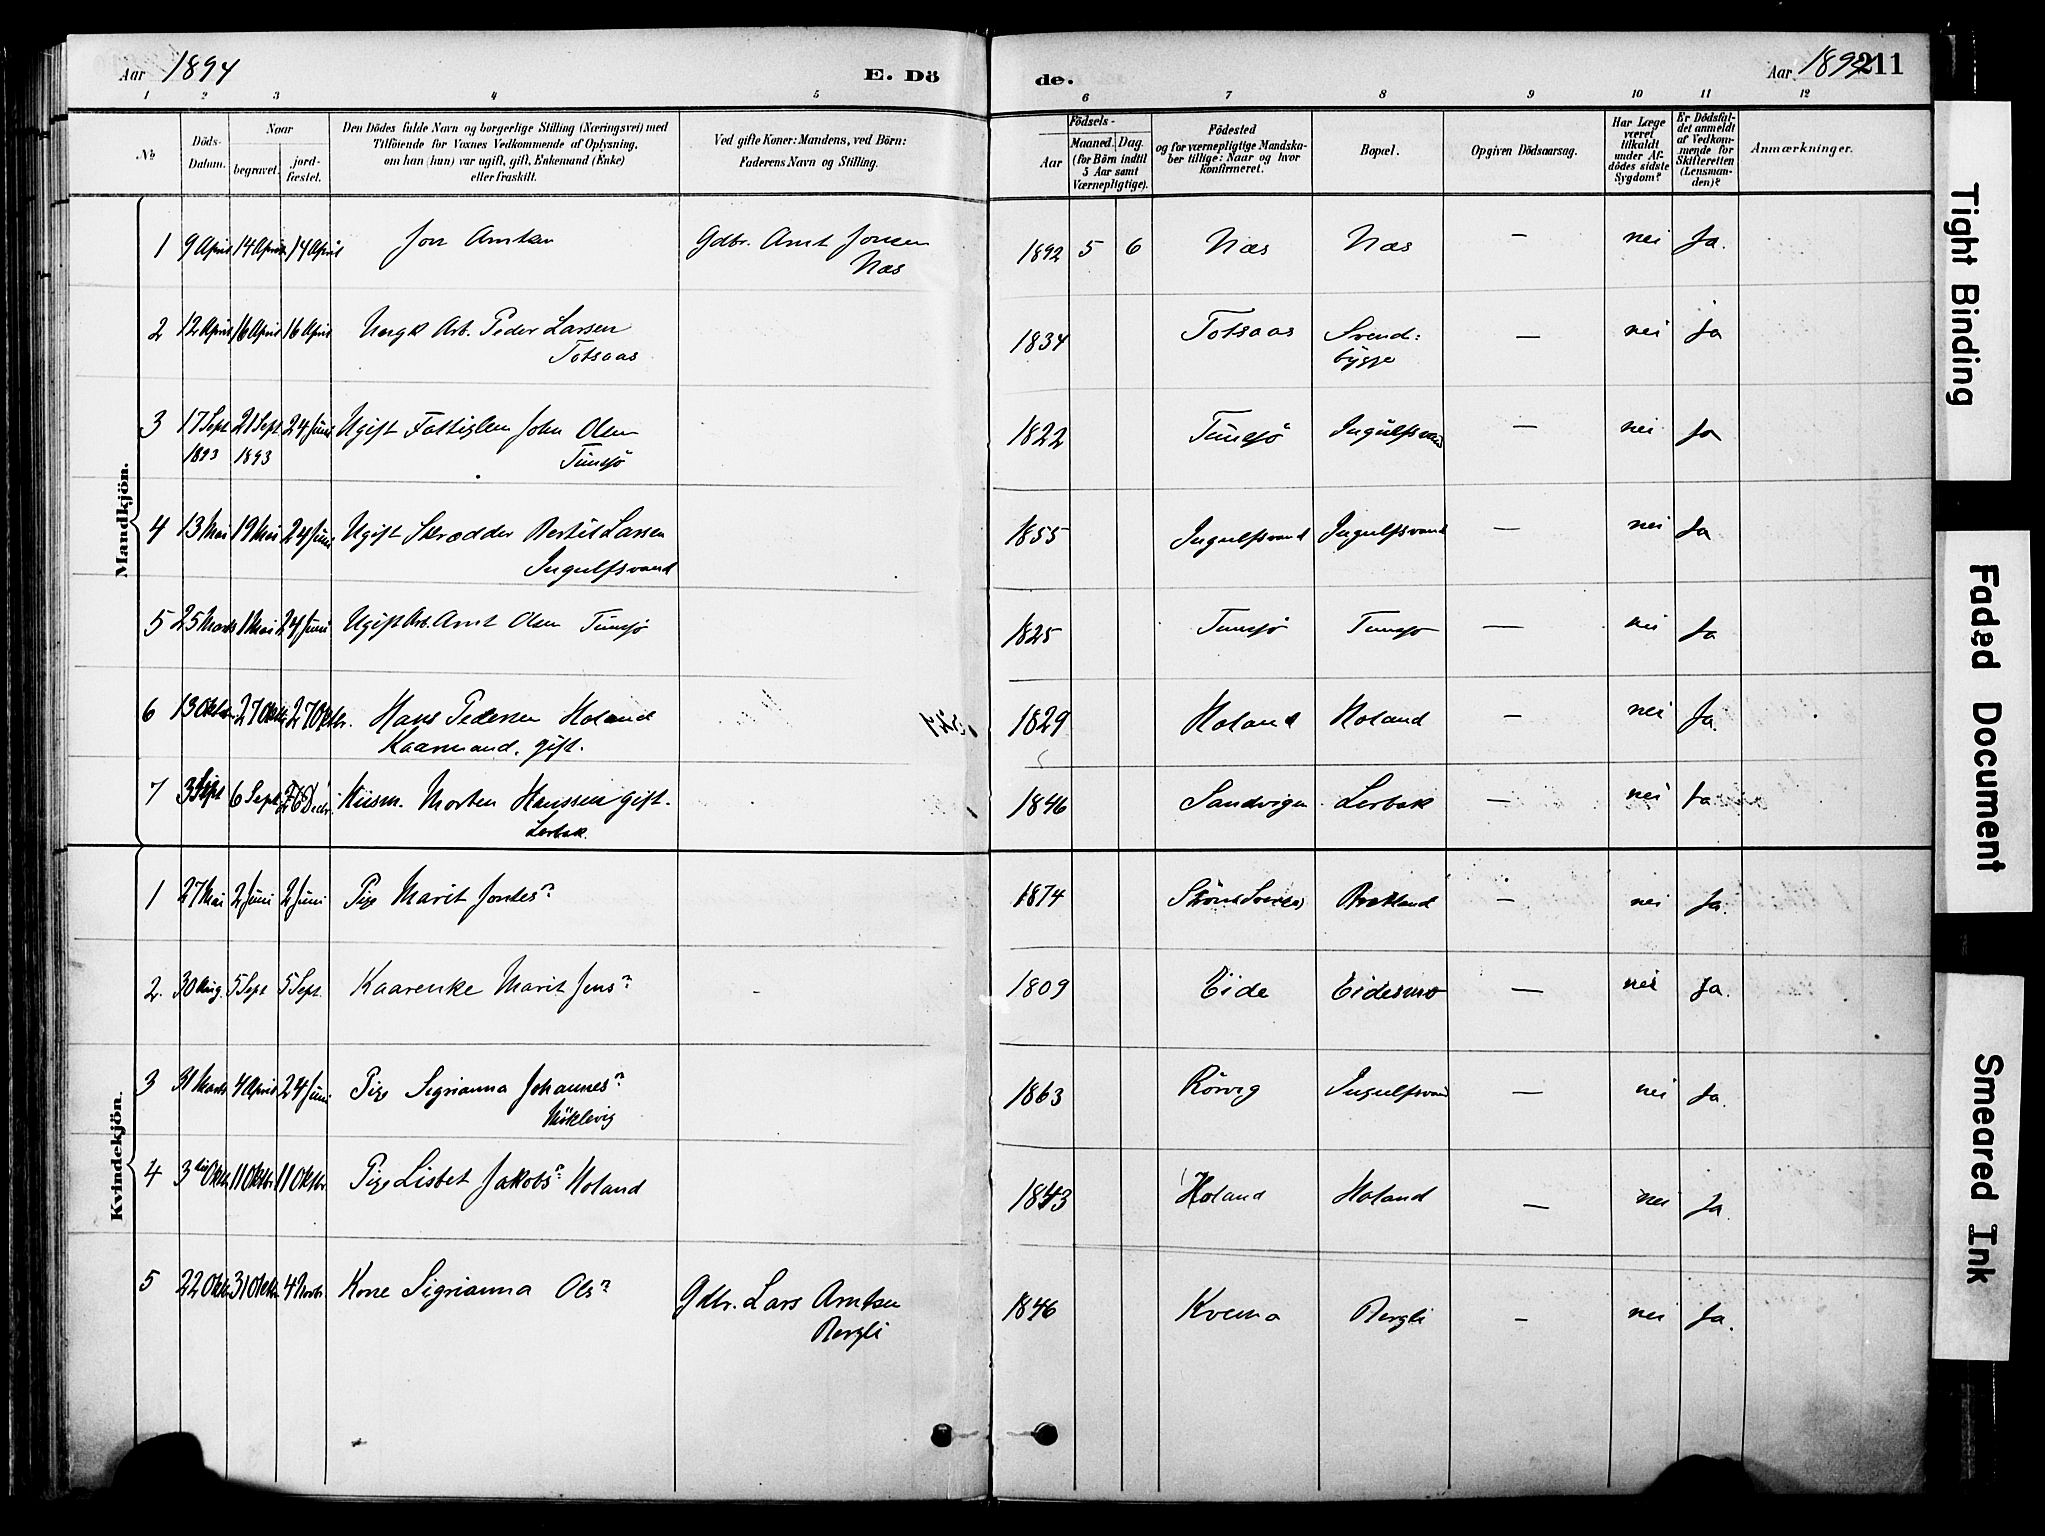 Aar 1894 E. Dö de. Aar 1894 211
1 2 3 4 5 6 7 8 9 10 11 12
No
Döds-Datum.
Naar
begravet.
jord-fæstet.
Den Dödes fulde Navn og borgerlige Stilling (Næringsvei) med
Tilföiende for Voxnes Vedkommende af Oplysning,
om han (hun) var ugift, gift, Enkemand (Enke)
eller fraskilt.
Ved gifte Koner: Mandens, ved Börn:
Faderens Navn og Stilling.
Födsels-
Aar
Maaned. Dag.
(for Börn indtil
5 Aar samt
Værnepligtige).
Födested
og for værnepligtige Mandska-
ber tillige: Naar og hvor
konfirmeret.
Bopæl.
Opgiven Dödsaarsag.
Har Læge
været
tilkaldt
under Af-
dödes sidste
Sygdom?
Er Dödsfal-
det anmeldt
af Vedkom-
mende for
Skifteretten
(Lensman-
den)?
Anmærkninger.
Mandkjön.
1 9 April 14 April 14 April Jon Arntsen Gdbr. Arnt Jonsen 1892 5 6 Næs Næs — nei Ja.
Næs
2 12 April 16 April 16 April Arb. Peder Larsen 1834 Totsaas Svend: — nei Ja
Totsaas bygge
3 17 Sept 21 Sept 24 Juni Ugift Fattiglem John Olsen 1822 Tunsjö Ingulfsvand — nei Ja
1893 1893 Tunsjö
4 13 Mai 19 Mai 24 Juni Ugift Skrædder Bertil Larsen 1855 Ingulfsvand Ingulfsvand — nei Ja
Ingulfsvand
5 25 Marts 1 Mai 24 Juni Ugift Arb. Arnt Olsen Tunsjö 1825 Tunsjö Tunsjö — nei Ja
6 13 Oktbr 27 Oktbr 27 Oktbr. Hans Pedersen Holand 1829 Holand Holand — nei Ja.
Kaarmand, gift.
7 3 Sept 6 Sept 26 Decbr. Husm. Morten Hanssen gift. 1846 Sandvigen Lerbak — nei Ja
Lerbak.
Kvindekjön.
1 27 Mai 2 Juni 2 Juni Pige Marit Jontesn: 1874 Brekland — nei Ja.
2. 30 Aug. 5 Sept 5 Sept. Kaarenke Marit Jensn: - 1809 Eide Eidesmo — nei Ja.
3 31 Marts 4 April 24 Juni Pige Sigrianna Johannesn: 1863 Rörvig Ingulfsvand — nei Ja.
Möklevig
4 3die Oktbr 11 Oktbr. 11 Oktbr. Pige Lisbet Jakobsn: Holand 1843 Holand Holand — nei Ja
5 22 Oktbr 31 Oktbr 4 Novbr. Kone Sigrianna Olsn: Gdbr. Lars Arntsen 1846 Kvema Bergli — nei Ja.
Bergli
Tight Binding
Faded Document
Smeared Ink